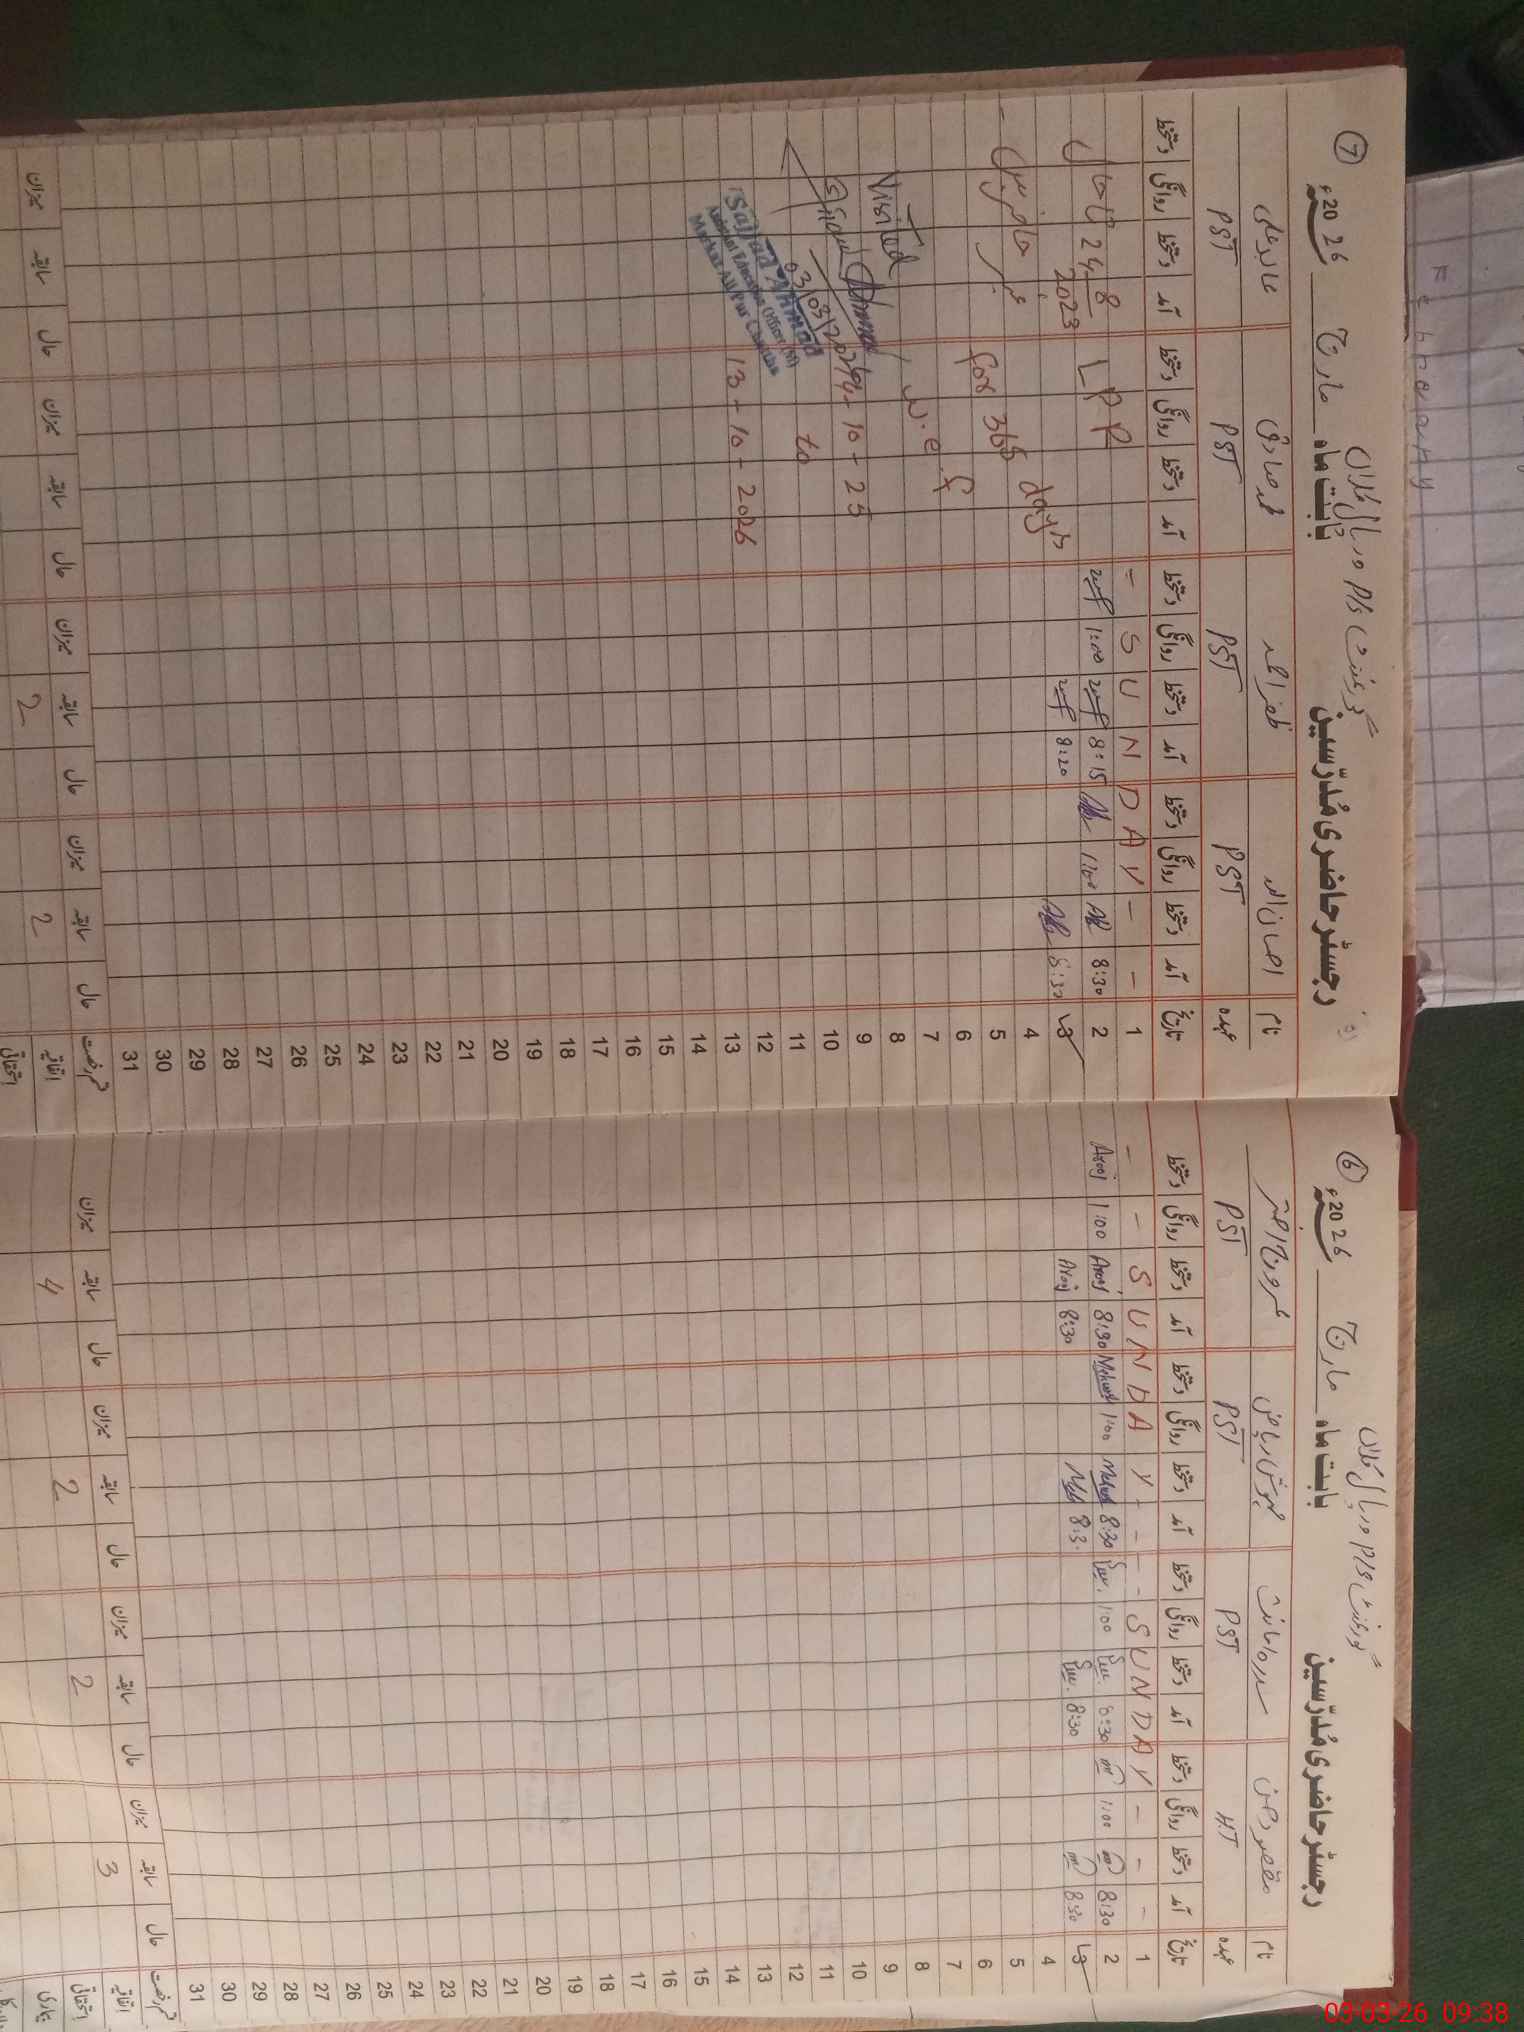 رجسٹر حاضری مُدرّسین
بابت ماہ مارچ 2026ء
7
نام احسان اللہ ظفر احمد محمد صادق عابد علی
عہدہ PST PST PST PST
تاریخ آمد دستخط روانگی دستخط آمد دستخط روانگی دستخط آمد دستخط روانگی دستخط آمد دستخط روانگی دستخط
1 - - Y A D N U S -
2 8:30 1:00 8:15 1:00
3 8:30 8:20
LPR
for 365 days
w.e.f
14-10-25
to
13-10-2026
24-8-2023 تا حال
غیر حاضر ہیں
Visited
03/03/2026
Sajjad Ahmad
Assistant Education Officer (M)
Markaz Ali Pur Chattha
4
5
6
7
8
9
10
11
12
13
14
15
16
17
18
19
20
21
22
23
24
25
26
27
28
29
30
31
قسم رخصت حال سابقہ میزان حال سابقہ میزان حال سابقہ میزان حال سابقہ میزان
اتفاقیہ 2 2
استحقاقی
رجسٹر حاضری مُدرّسین
بابت ماہ مارچ 2026ء
6
نام مقصود حسن سدرہ امانت مہوش ریاض عروج اختر
عہدہ H.T PST PST PST
تاریخ آمد دستخط روانگی دستخط آمد دستخط روانگی دستخط آمد دستخط روانگی دستخط آمد دستخط روانگی دستخط
1 - - - SUNDAY - - - SUNDAY - -
2 8:30 1:00 8:30 1:00 8:30 Mehwish 1:00 Mehwish 8:30 Arooj 1:00 Arooj
3 8:30 8:30 8:30 8:30 Arooj
4
5
6
7
8
9
10
11
12
13
14
15
16
17
18
19
20
21
22
23
24
25
26
27
28
29
30
31
قسم رخصت حال سابقہ میزان حال سابقہ میزان حال سابقہ میزان حال سابقہ میزان
اتفاقیہ 3 2 2 4
استحقاقی
بیماری
February
03-03-26 09:38